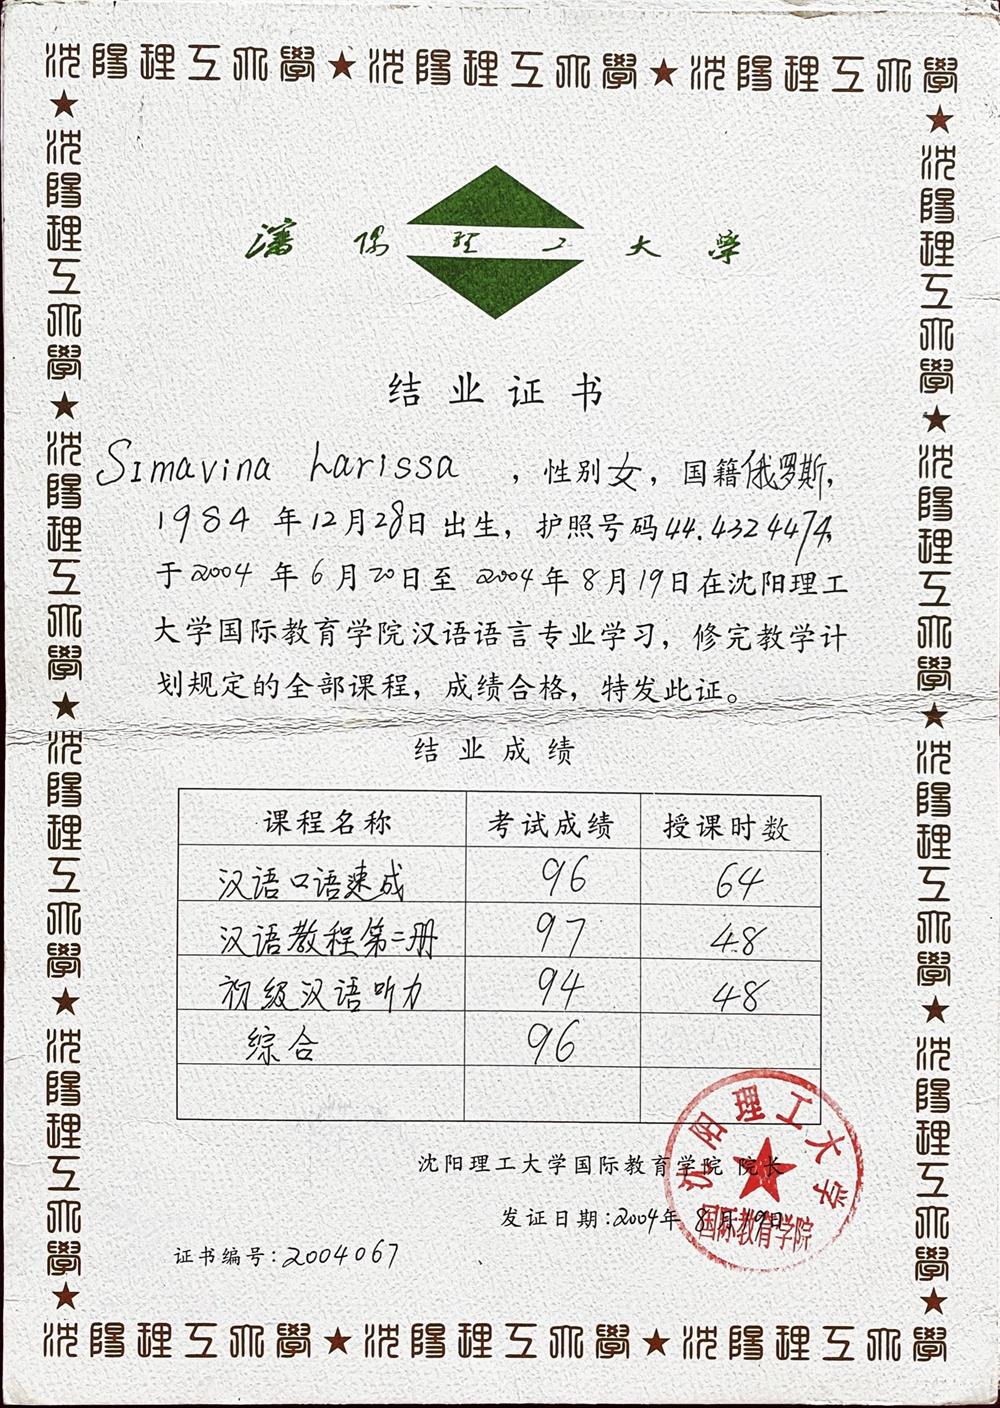 沈陽理工大學★沈陽理工大學★沈陽理工大學
瀋陽理工大學
结业证书
Simavina Larissa，性别女，国籍俄罗斯，
1984年12月28日出生，护照号码44.4324474，
于2004年6月20日至2004年8月19日在沈阳理工
大学国际教育学院汉语语言专业学习，修完教学计
划规定的全部课程，成绩合格，特发此证。
结业成绩
课程名称 考试成绩 授课时数
汉语口语速成 96 64
汉语教程第二册 97 48
初级汉语听力 94 48
综合 96
沈阳理工大学国际教育学院 院长
发证日期：2004年8月19日
证书编号：2004067
沈阳理工大学
国际教育学院
★沈陽理工大學★沈陽理工大學★沈陽理工大學★沈陽理工大學★
★沈陽理工大學★沈陽理工大學★沈陽理工大學★沈陽理工大學★
沈陽理工大學★沈陽理工大學★沈陽理工大學